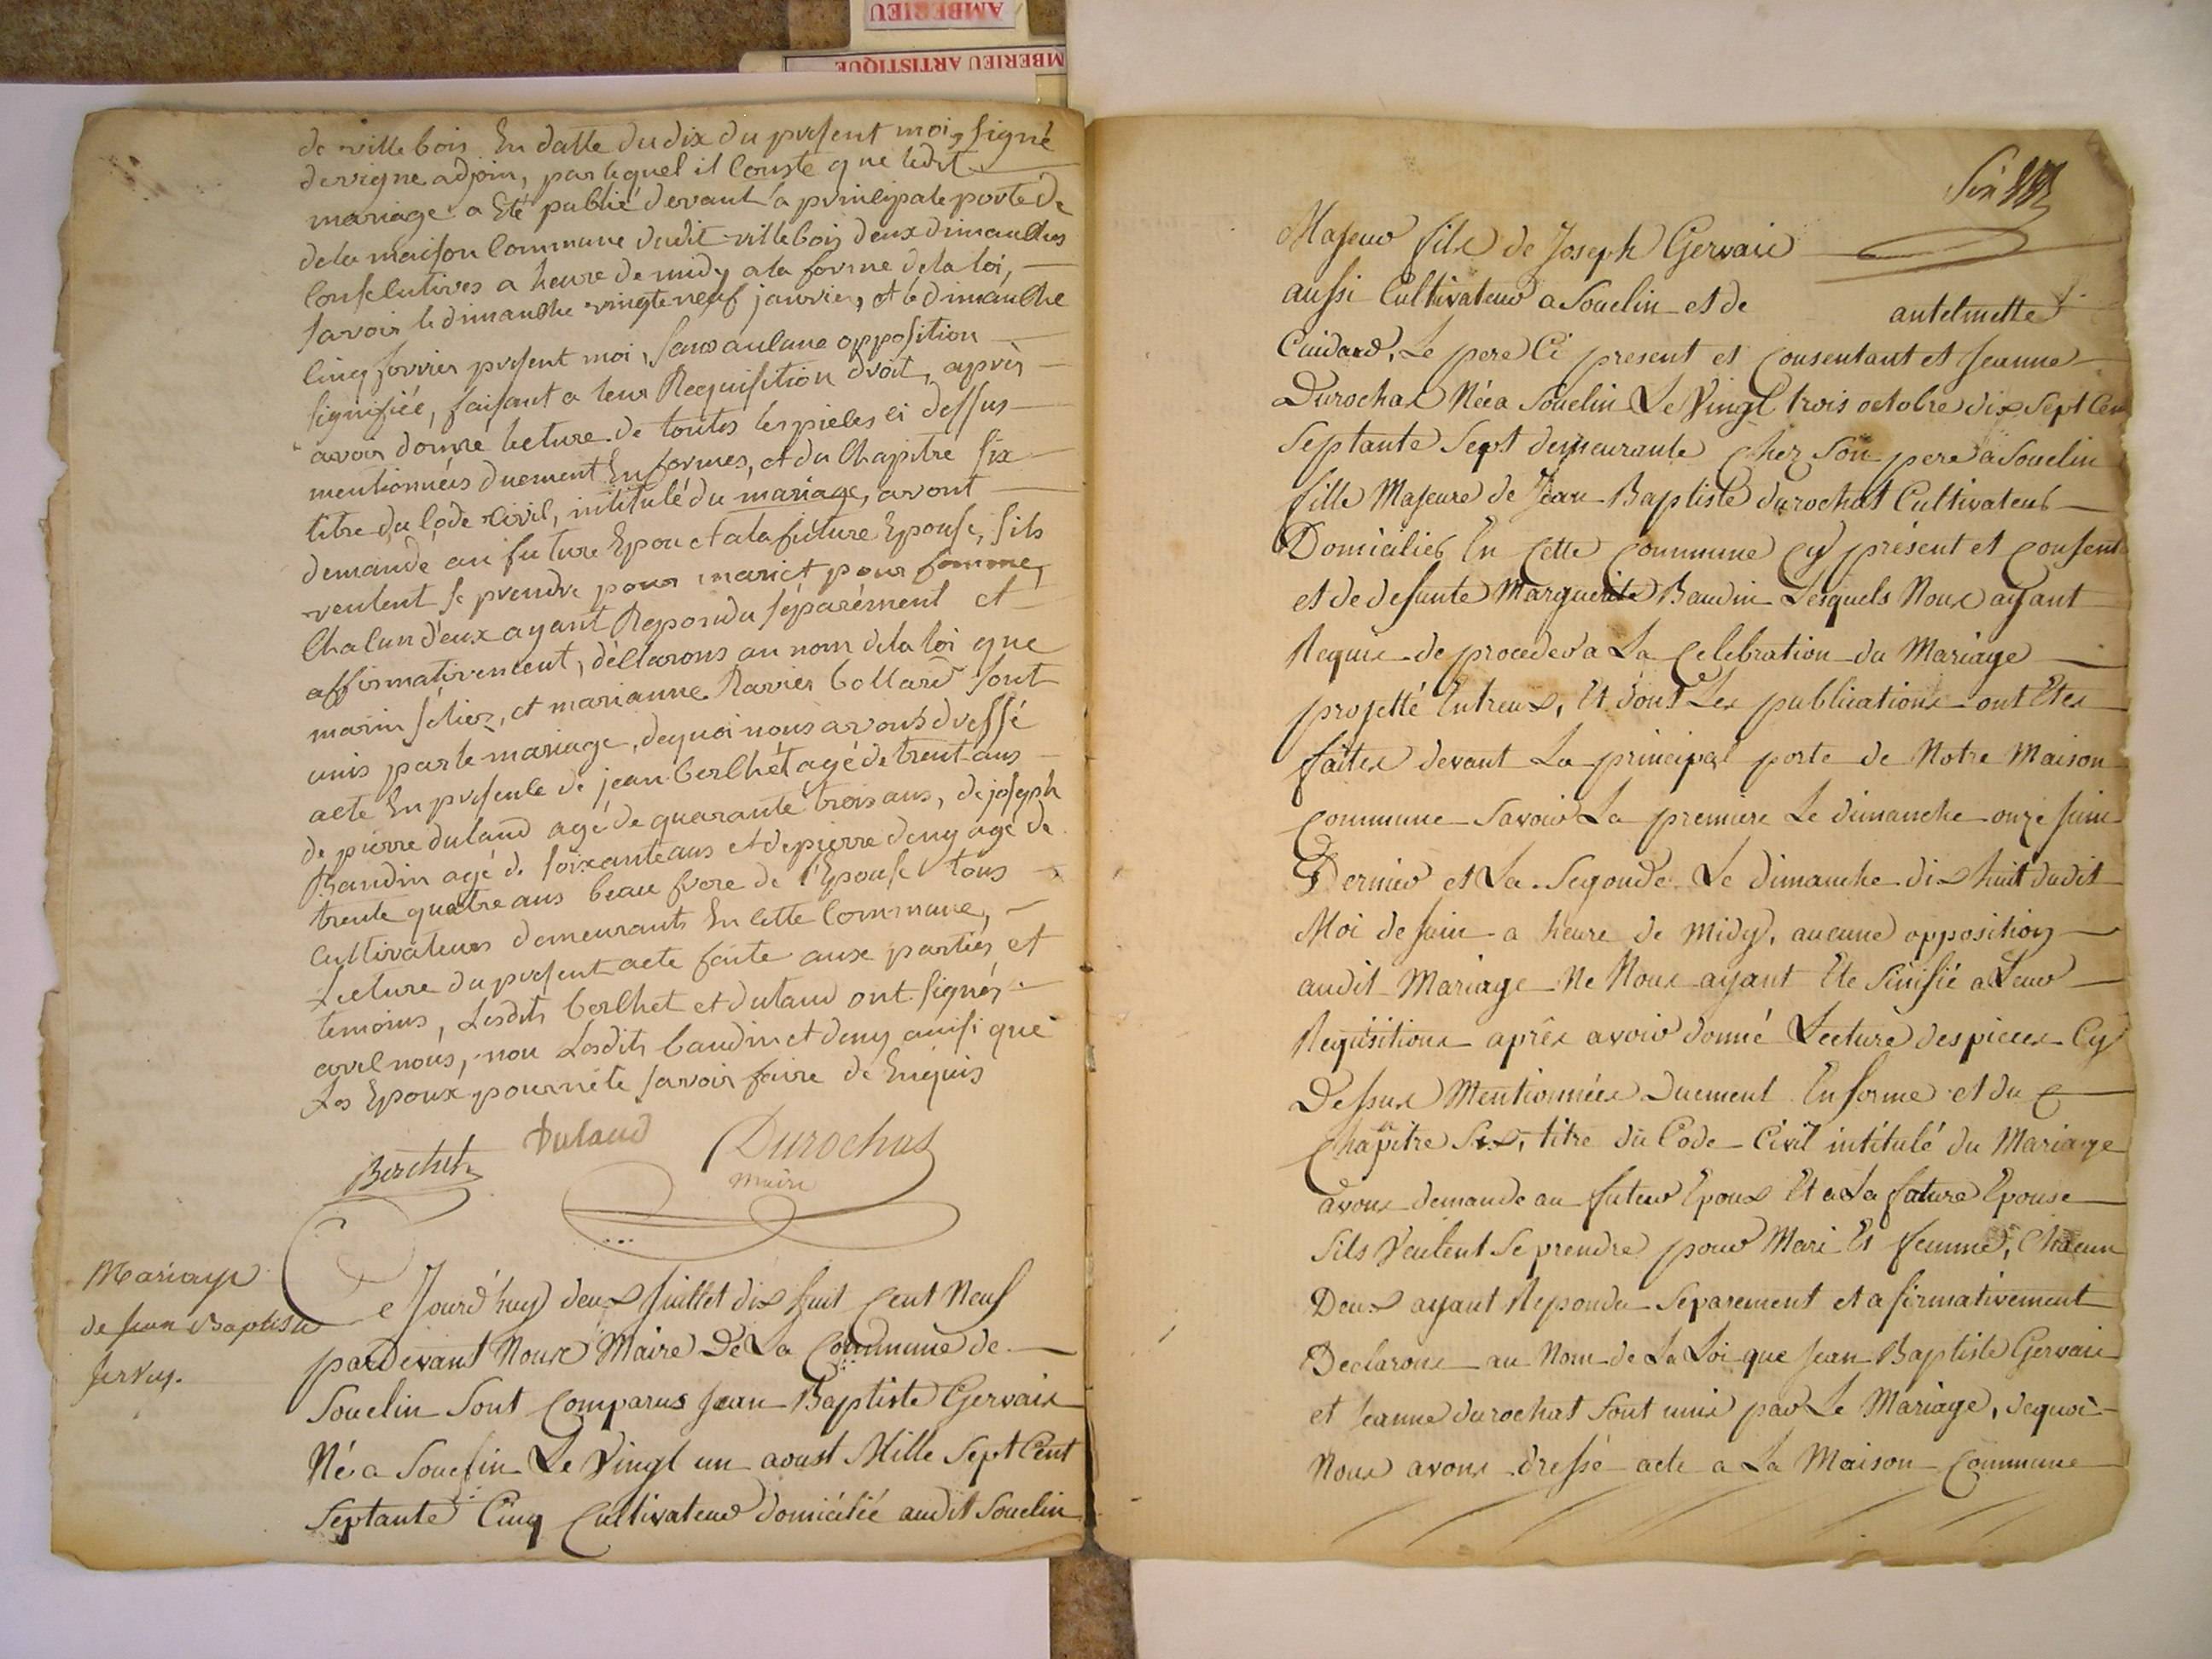 AMBERIEU
AMBERIEU ARTISTIQUE
de villebois En datte du dix du present mois, signé
dervigne adjoin, par lequel il Conste que ledit
mariage a Eté publié devant la principale porte de
de la maison Commune dudit villebois deux dimanches
Consecutives a heure de midy a la forme de la loi,
savoir le dimanche vingt neuf janvier, et le dimanche
cinq fevrier present moi, sans aucune opposition
signifiée, faisant a leur Requisition droit, après
avoir donné lecture de toutes les pieces ci dessus
mentionnées duement En formes, et du Chapitre six
titre du Code Civil, intitulé du mariage, avont
demandé au future Epou et a la future Epouse, sils
veulent se prendre pour mari et pour femme,
Chacun d'eux ayant Repondu séparément et
affirmativement, déclarons au nom de la loi que
marin, et marianne Ravier Collard sont
unis par le mariage, de quoi nous avons dressé
acte En presence de jean berchet agé de trent ans
de pierre dulaud agé de quarante trois ans, de joseph
Baudin agé de soixante ans et de pierre deny agé de
trente quatre ans beau frere de l'Epouse tous
Cultivateurs demeurants En cette Commune,
Lecture du present acte faite aux parties, et
temoins, Lesdits berchet et dulaud ont signés
avec nous, non Lesdits baudin et deny ainsi que
Les Epoux pour ne le savoir faire de Enquis
Berchet Dulaud Durochat
maire
Mariage
de Jean Baptiste
Jervay.
Ce Jourd'huy deux Juillet dix huit Cent Neuf
pardevant Nous Maire De La Commune de
Souclin Sont Comparus Jean Baptiste Gervais
Né a Souclin Le Vingt un aoust Mille Sept Cent
Septante Cinq Cultivateur domicilié audit Souclin
Six
Majeur fils de Joseph Gervais
aussi Cultivateur a Souclin et de antelmette
Cuidard, Le pere Ci present et Consentant et Jeanne
Durochat Née a Souclin Le Vingt trois octobre dix Sept Cen
Septante Sept demeurante Chez Son pere a Souclin
fille Majeure de Jean Baptiste durochat Cultivateur
Domicilier En Cette Commune Cy présent et Consent
et de defunte Marguerite Baudin Lesquels Nous ayant
Requis de proceder a La Celebration du Mariage
projetté Entreux, Et dont Les publications ont Etes
faites devant La principal porte de Notre Maison
Commune Savoir La premiere Le dimanche onze Juin
Dernier et La Segonde Le dimanche dix huit dudit
Moi de Juin a heure de Midy, aucune opposition
audit Mariage Ne Nous ayant Ete Sinifié a Leur
Requisitions après avoir donné Lecture des pieces Cy
Dessus Mentionnées Duement En forme et du C
Chapitre Six, titre du Code Civil intitulé du Mariage
avons demande au futeur Epoux Et a La future Epouse
Sils Veulent Se prendre pour Mari Et femme, Chacun
Deux ayant Repondu Separement et afirmativement
Declarons au Nom de La Loi que Jean Baptiste Gervais
et Jeanne durochat Sont unis par Le Mariage, dequoi
Nous avons dressé acte a La Maison Commune